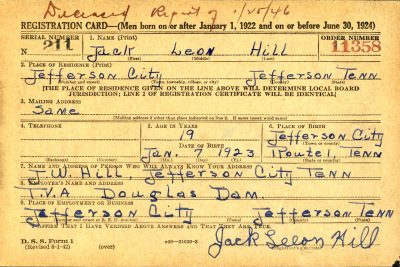 Deceased Report of 1/25/46
REGISTRATION CARD—(Men born on or after January 1, 1922 and on or before June 30, 1924)
SERIAL NUMBER 1. NAME (Print) ORDER NUMBER
211 Jack Leon Hill 11358
(First) (Middle) (Last)
2. PLACE OF RESIDENCE (Print)
Jefferson City Jefferson Tenn
(Number and street) (Town, township, village, or city) (County) (State)
[THE PLACE OF RESIDENCE GIVEN ON THE LINE ABOVE WILL DETERMINE LOCAL BOARD
JURISDICTION; LINE 2 OF REGISTRATION CERTIFICATE WILL BE IDENTICAL]
3. MAILING ADDRESS
Same
[Mailing address if other than place indicated on line 2. If same insert word same]
4. TELEPHONE 5. AGE IN YEARS 6. PLACE OF BIRTH
19 Jefferson City
DATE OF BIRTH (Town or county)
Jan. 7 1923 Route 1 Tenn
(Exchange) (Number) (Mo.) (Day) (Yr.) (State or country)
7. NAME AND ADDRESS OF PERSON WHO WILL ALWAYS KNOW YOUR ADDRESS
J.W. Hill Jefferson City Tenn
8. EMPLOYER'S NAME AND ADDRESS
T.V.A Douglas Dam.
9. PLACE OF EMPLOYMENT OR BUSINESS
Jefferson City Jefferson Tenn
(Number and street or R. F. D. number) (Town) (County) (State)
I AFFIRM THAT I HAVE VERIFIED ABOVE ANSWERS AND THAT THEY ARE TRUE.
D. S. S. Form 1
(Revised 6-1-42) (over) Jack Leon Hill